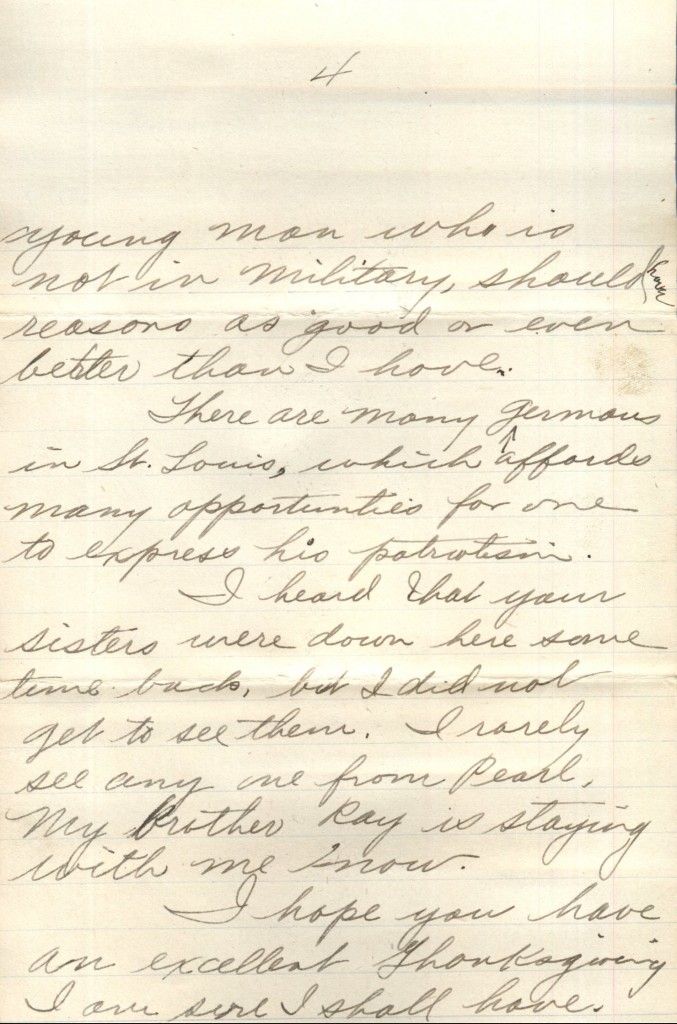 4
young man who is
not in military, should have
reasons as good or even
better than I have.
There are many Germans
in St. Louis, which affords
many opportunties for one
to express his patriotism.
I heard that your
sisters were down here some
time back, but I did not
get to see them. I rarely
see any one from Pearl.
My Brother Ray is staying
with me now.
I hope you have
an excellent Thanksgiving
I am sure I shall have.